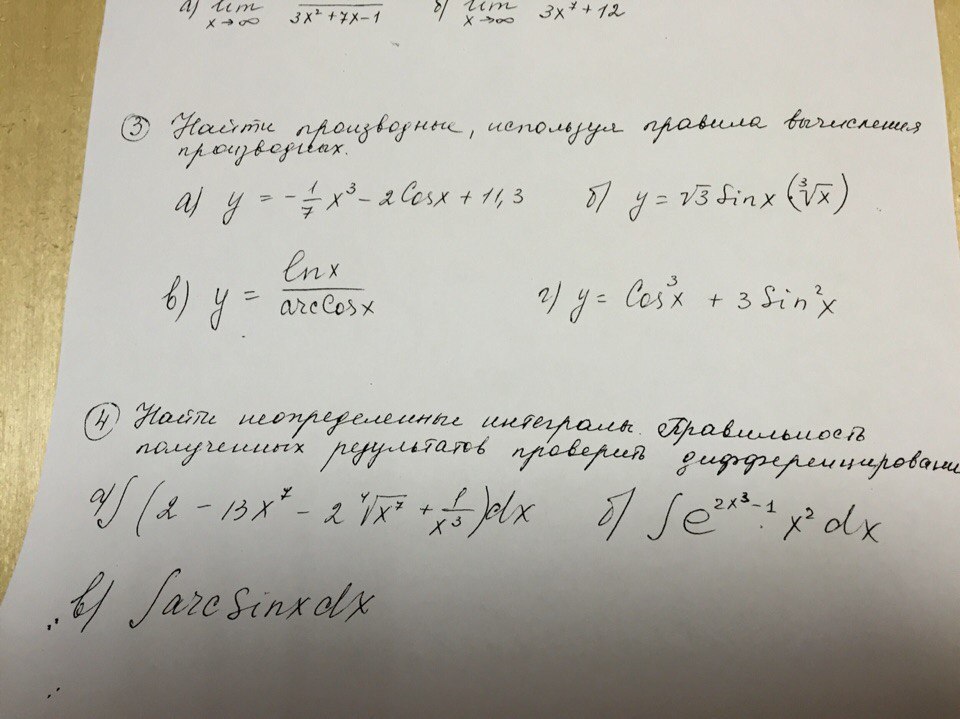 а) lim 3x² + 7x - 1 б) lim 3x⁷ + 12
x→∞ x→∞
③ Найти производные, используя правила вычисления
производных.
а) y = -1/7 x³ - 2Cosx + 11,3 б) y = √3 Sinx (·∛x)
в) y = lnx / arcCosx г) y = Cos³x + 3 Sin²x
④ Найти неопределенные интегралы. Правильность
полученных результатов проверить дифференцировани
а) ∫(2 - 13x⁷ - 2 ⁴√x⁷ + 1/x³)dx б) ∫e^(2x³-1) · x² dx
в) ∫arcSinxdx